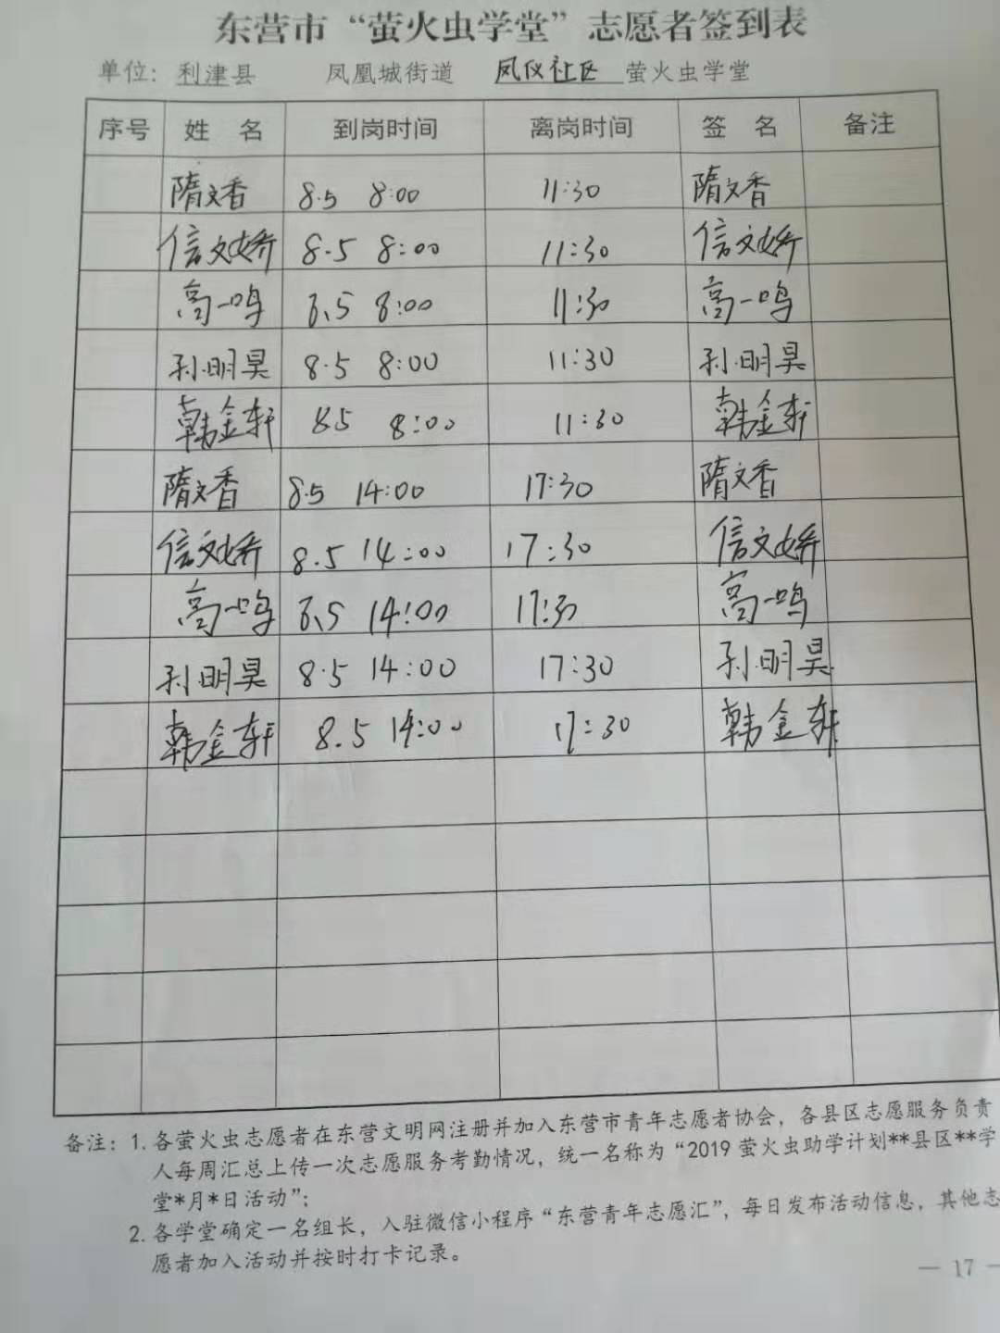 东营市“萤火虫学堂”志愿者签到表
单位：利津县 凤凰城街道 凤仪社区 萤火虫学堂
序号 姓 名 到岗时间 离岗时间 签 名 备注
隋文香 8.5 8:00 11:30 隋文香
信文娇 8.5 8:00 11:30 信文娇
高一鸣 8.5 8:00 11:30 高一鸣
孙明昊 8.5 8:00 11:30 孙明昊
韩金轩 8.5 8:00 11:30 韩金轩
隋文香 8.5 14:00 17:30 隋文香
信文娇 8.5 14:00 17:30 信文娇
高一鸣 8.5 14:00 17:30 高一鸣
孙明昊 8.5 14:00 17:30 孙明昊
韩金轩 8.5 14:00 17:30 韩金轩
备注：1. 各萤火虫志愿者在东营文明网注册并加入东营市青年志愿者协会，各县区志愿服务负责
人每周汇总上传一次志愿服务考勤情况，统一名称为“2019 萤火虫助学计划**县区**学
堂*月*日活动”；
2. 各学堂确定一名组长，入驻微信小程序“东营青年志愿汇”，每日发布活动信息，其他志
愿者加入活动并按时打卡记录。
— 17 —